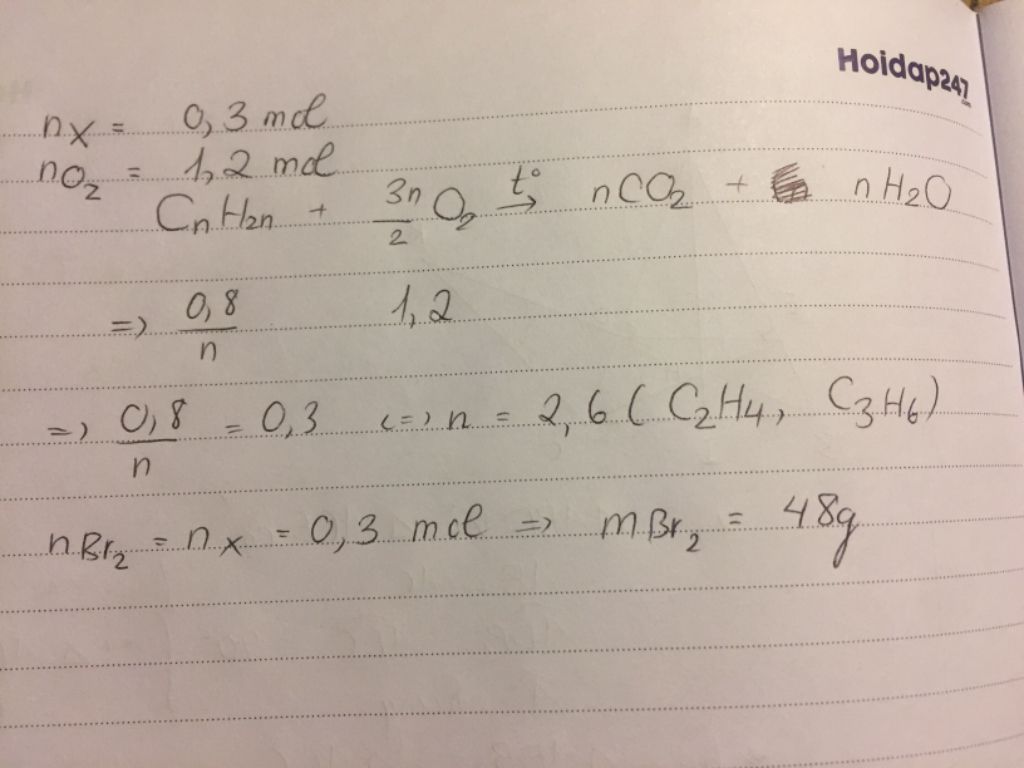 Hoidap247.com
nX = 0,3 mol
nO2 = 1,2 mol
CnH2n + 3n/2 O2 t°→ nCO2 + nH2O
=> 0,8/n 1,2
=> 0,8/n = 0,3 <=> n = 2,6 (C2H4, C3H6)
nBr2 = nx = 0,3 mol => mBr2 = 48g